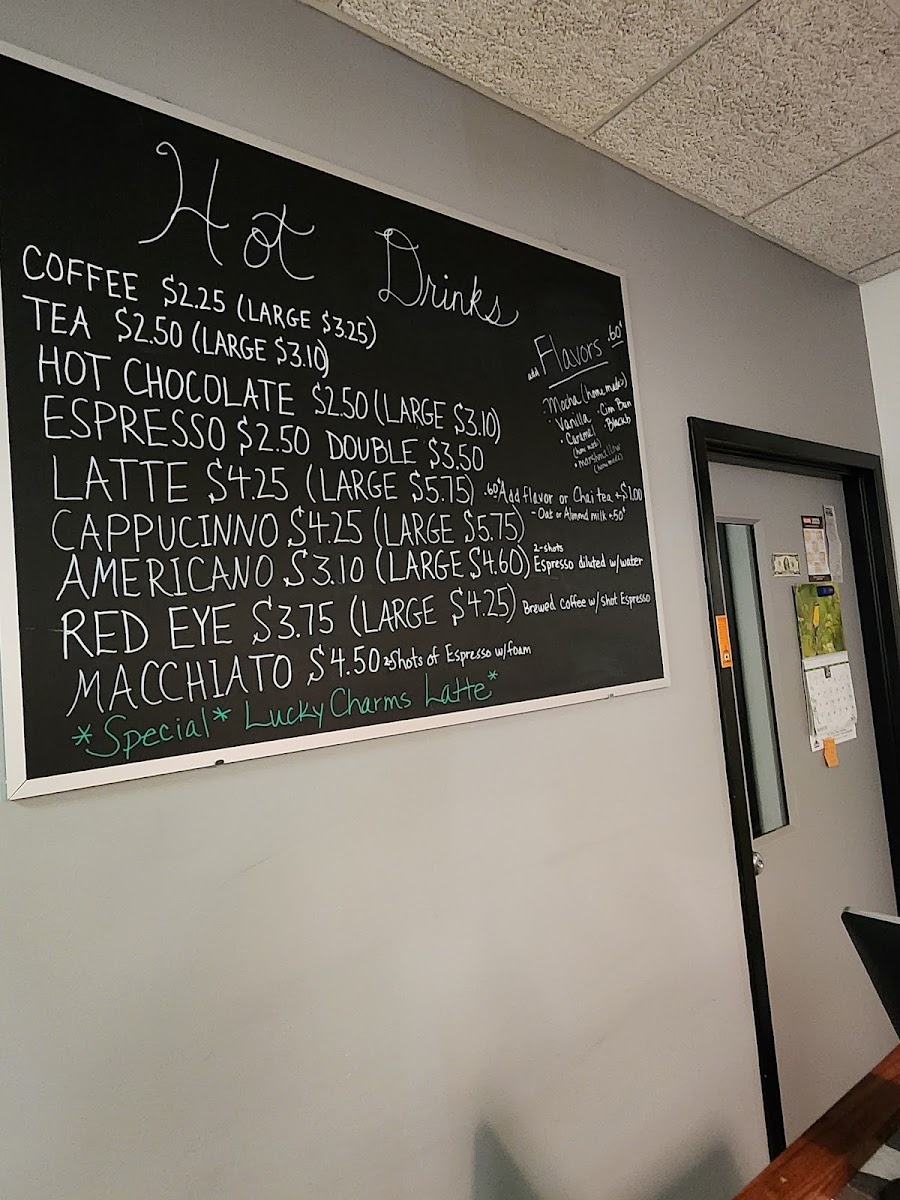 Hot Drinks
COFFEE $2.25 (LARGE $3.25)
TEA $2.50 (LARGE $3.10)
HOT CHOCOLATE $2.50 (LARGE $3.10)
ESPRESSO $2.50 DOUBLE $3.50
LATTE $4.25 (LARGE $5.75) .60¢ Add flavor or Chai tea +$1.00
- Oat or Almond milk +.50¢
CAPPUCINNO $4.25 (LARGE $5.75)
AMERICANO $3.10 (LARGE $4.60) 2-shots Espresso diluted w/water
RED EYE $3.75 (LARGE $4.25) Brewed Coffee w/ shot Espresso
MACCHIATO $4.50 2 Shots of Espresso w/foam
*Special* Lucky Charms Latte*
add Flavors .60¢
• Mocha (home made)
• Vanilla • Cin Bun
• Caramel
• marshmallow
(home made)